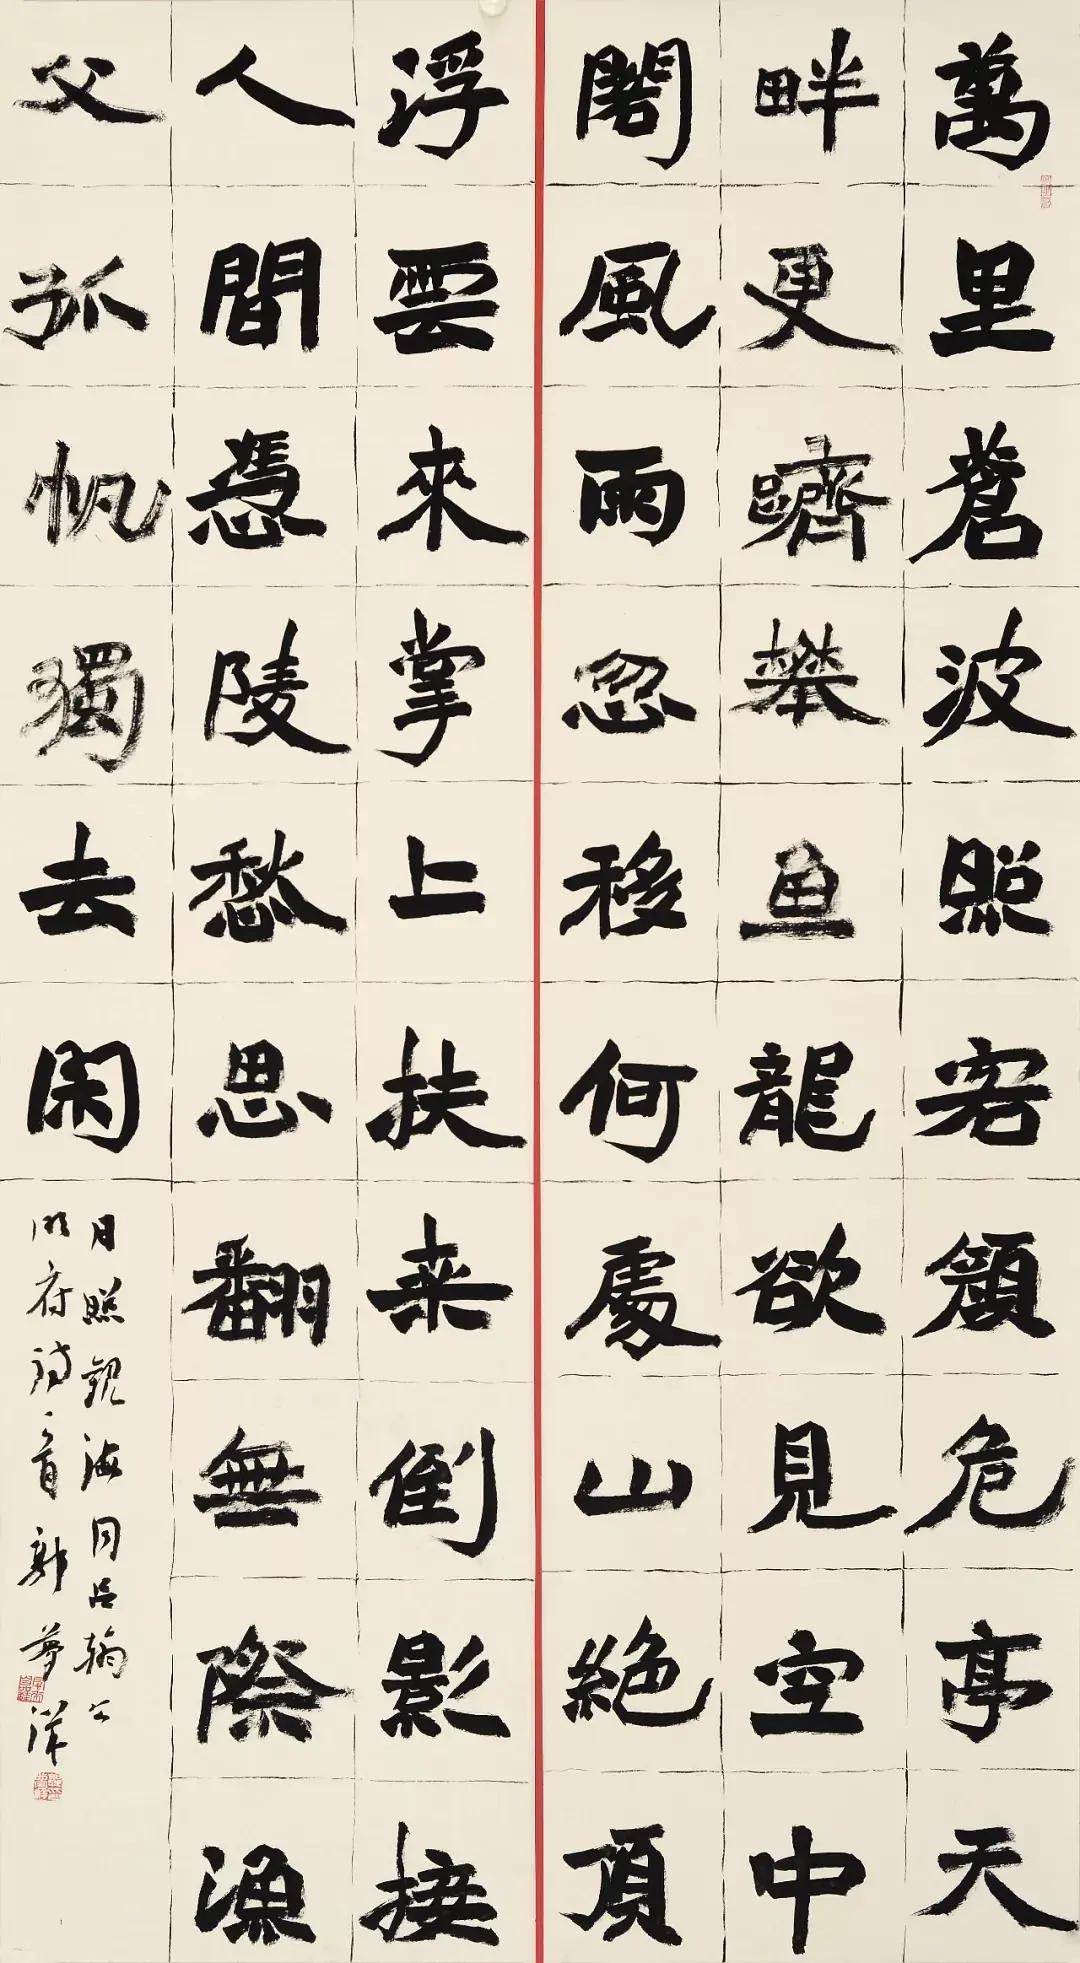 萬里蒼波照客顏危亭天
畔更躋攀鱼龍欲見空中
閣風雨忽移何處山絕頂
浮雲來掌上扶桒倒影接
人間憑陵愁思翻無際漁
父孤帆獨去閑
日照觀海同吕翰公
明府詩一首郭夢洋